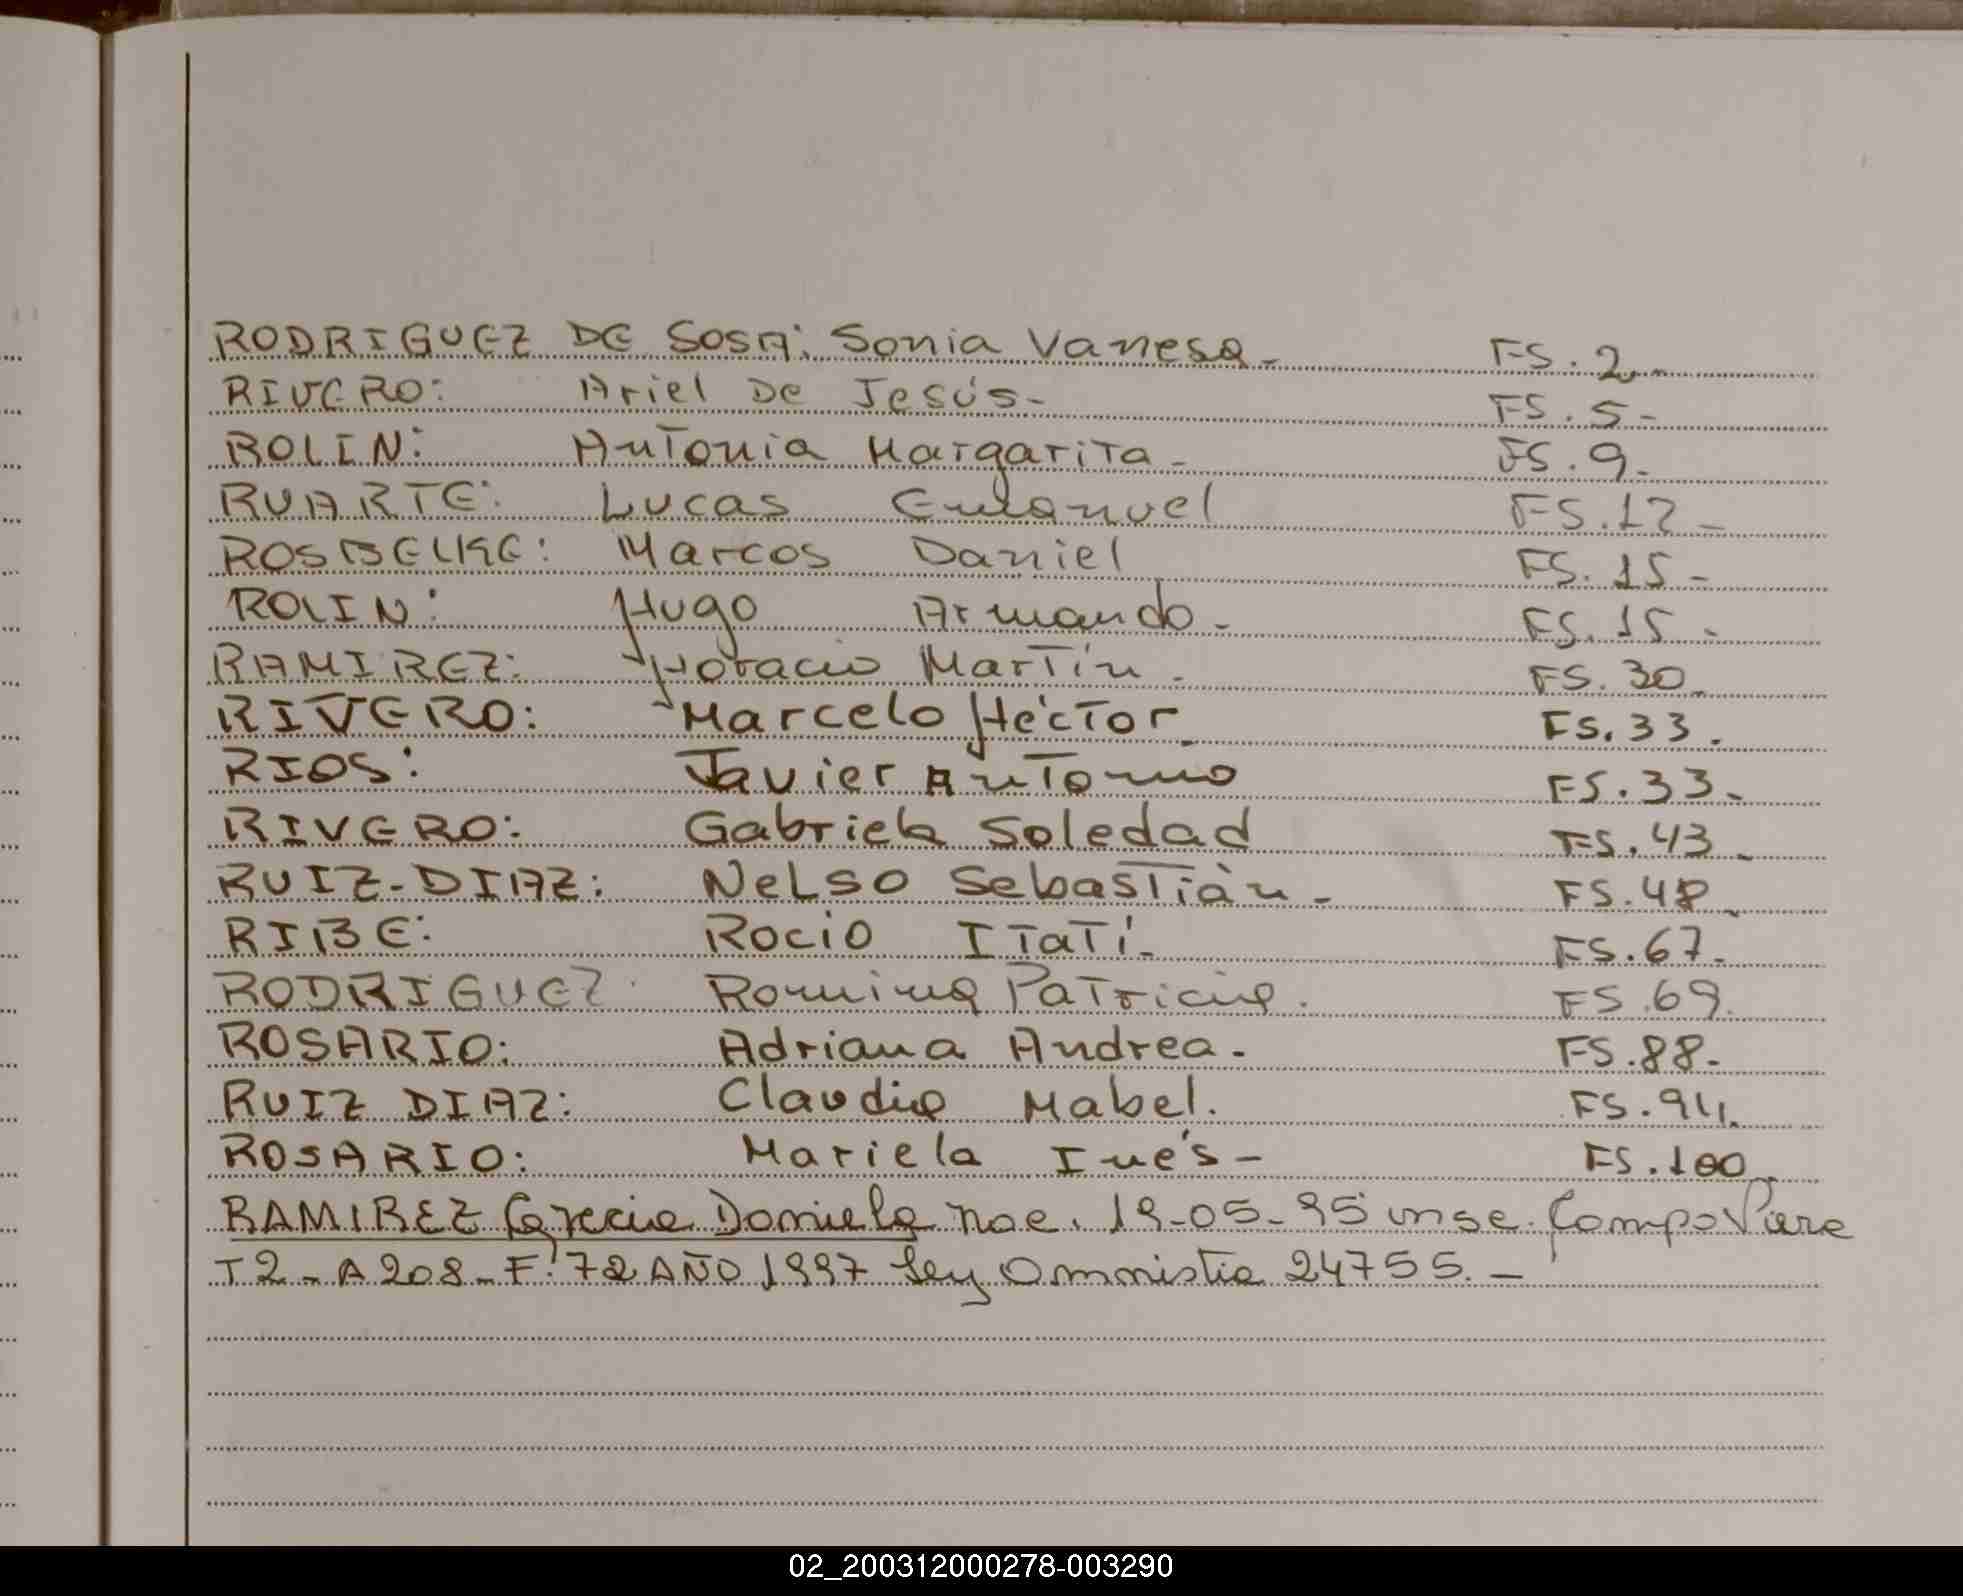 RODRIGUEZ DE SOSA: Sonia Vanesa- FS. 2.-
RIVERO: Ariel De Jesús- FS. 5-
ROLIN: Antonia Margarita- FS. 9-
RUARTE: Lucas Emanuel FS. 12-
ROSBELKE: Marcos Daniel FS. 15-
ROLIN: Hugo Armando- FS. 15-
RAMIREZ: Horacio Martín- FS. 30-
RIVERO: Marcelo Héctor- FS. 33.
RIOS: Javier Antonio FS. 33-
RIVERO: Gabriela Soledad FS. 43-
RUIZ-DIAZ: Nelso Sebastián- FS. 48-
RIBE: Rocio Itatí- FS. 67-
RODRIGUEZ: Romina Patricia. FS. 69-
ROSARIO: Adriana Andrea- FS. 88-
RUIZ DIAZ: Claudia Mabel. FS. 94-
ROSARIO: Mariela Inés- FS. 100
RAMIREZ Grecia Daniela nac. 19-05-95 insc. Campo Viera
T2-A208-F.72 AÑO 1997 Ley Amnistia 24755.-
02_200312000278-003290